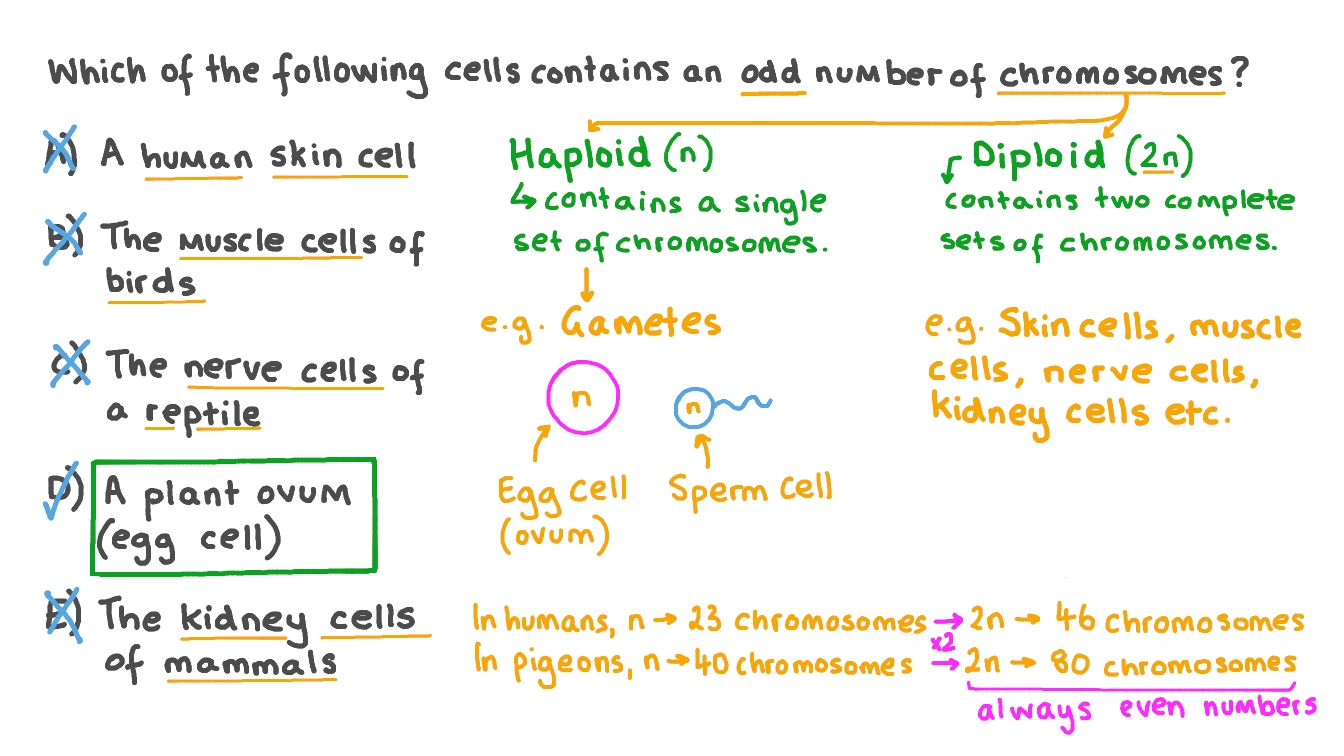 Which of the following cells contains an odd number of chromosomes?
A) A human skin cell
B) The muscle cells of
birds
C) The nerve cells of
a reptile
D) A plant ovum
(egg cell)
E) The kidney cells
of mammals
Haploid (n)
↳ contains a single
set of chromosomes.
e.g. Gametes
n
n
Egg cell
(ovum)
Sperm cell
Diploid (2n)
contains two complete
sets of chromosomes.
e.g. Skin cells, muscle
cells, nerve cells,
kidney cells etc.
In humans, n → 23 chromosomes → 2n → 46 chromosomes
x2
In pigeons, n → 40 chromosomes → 2n → 80 chromosomes
always even numbers